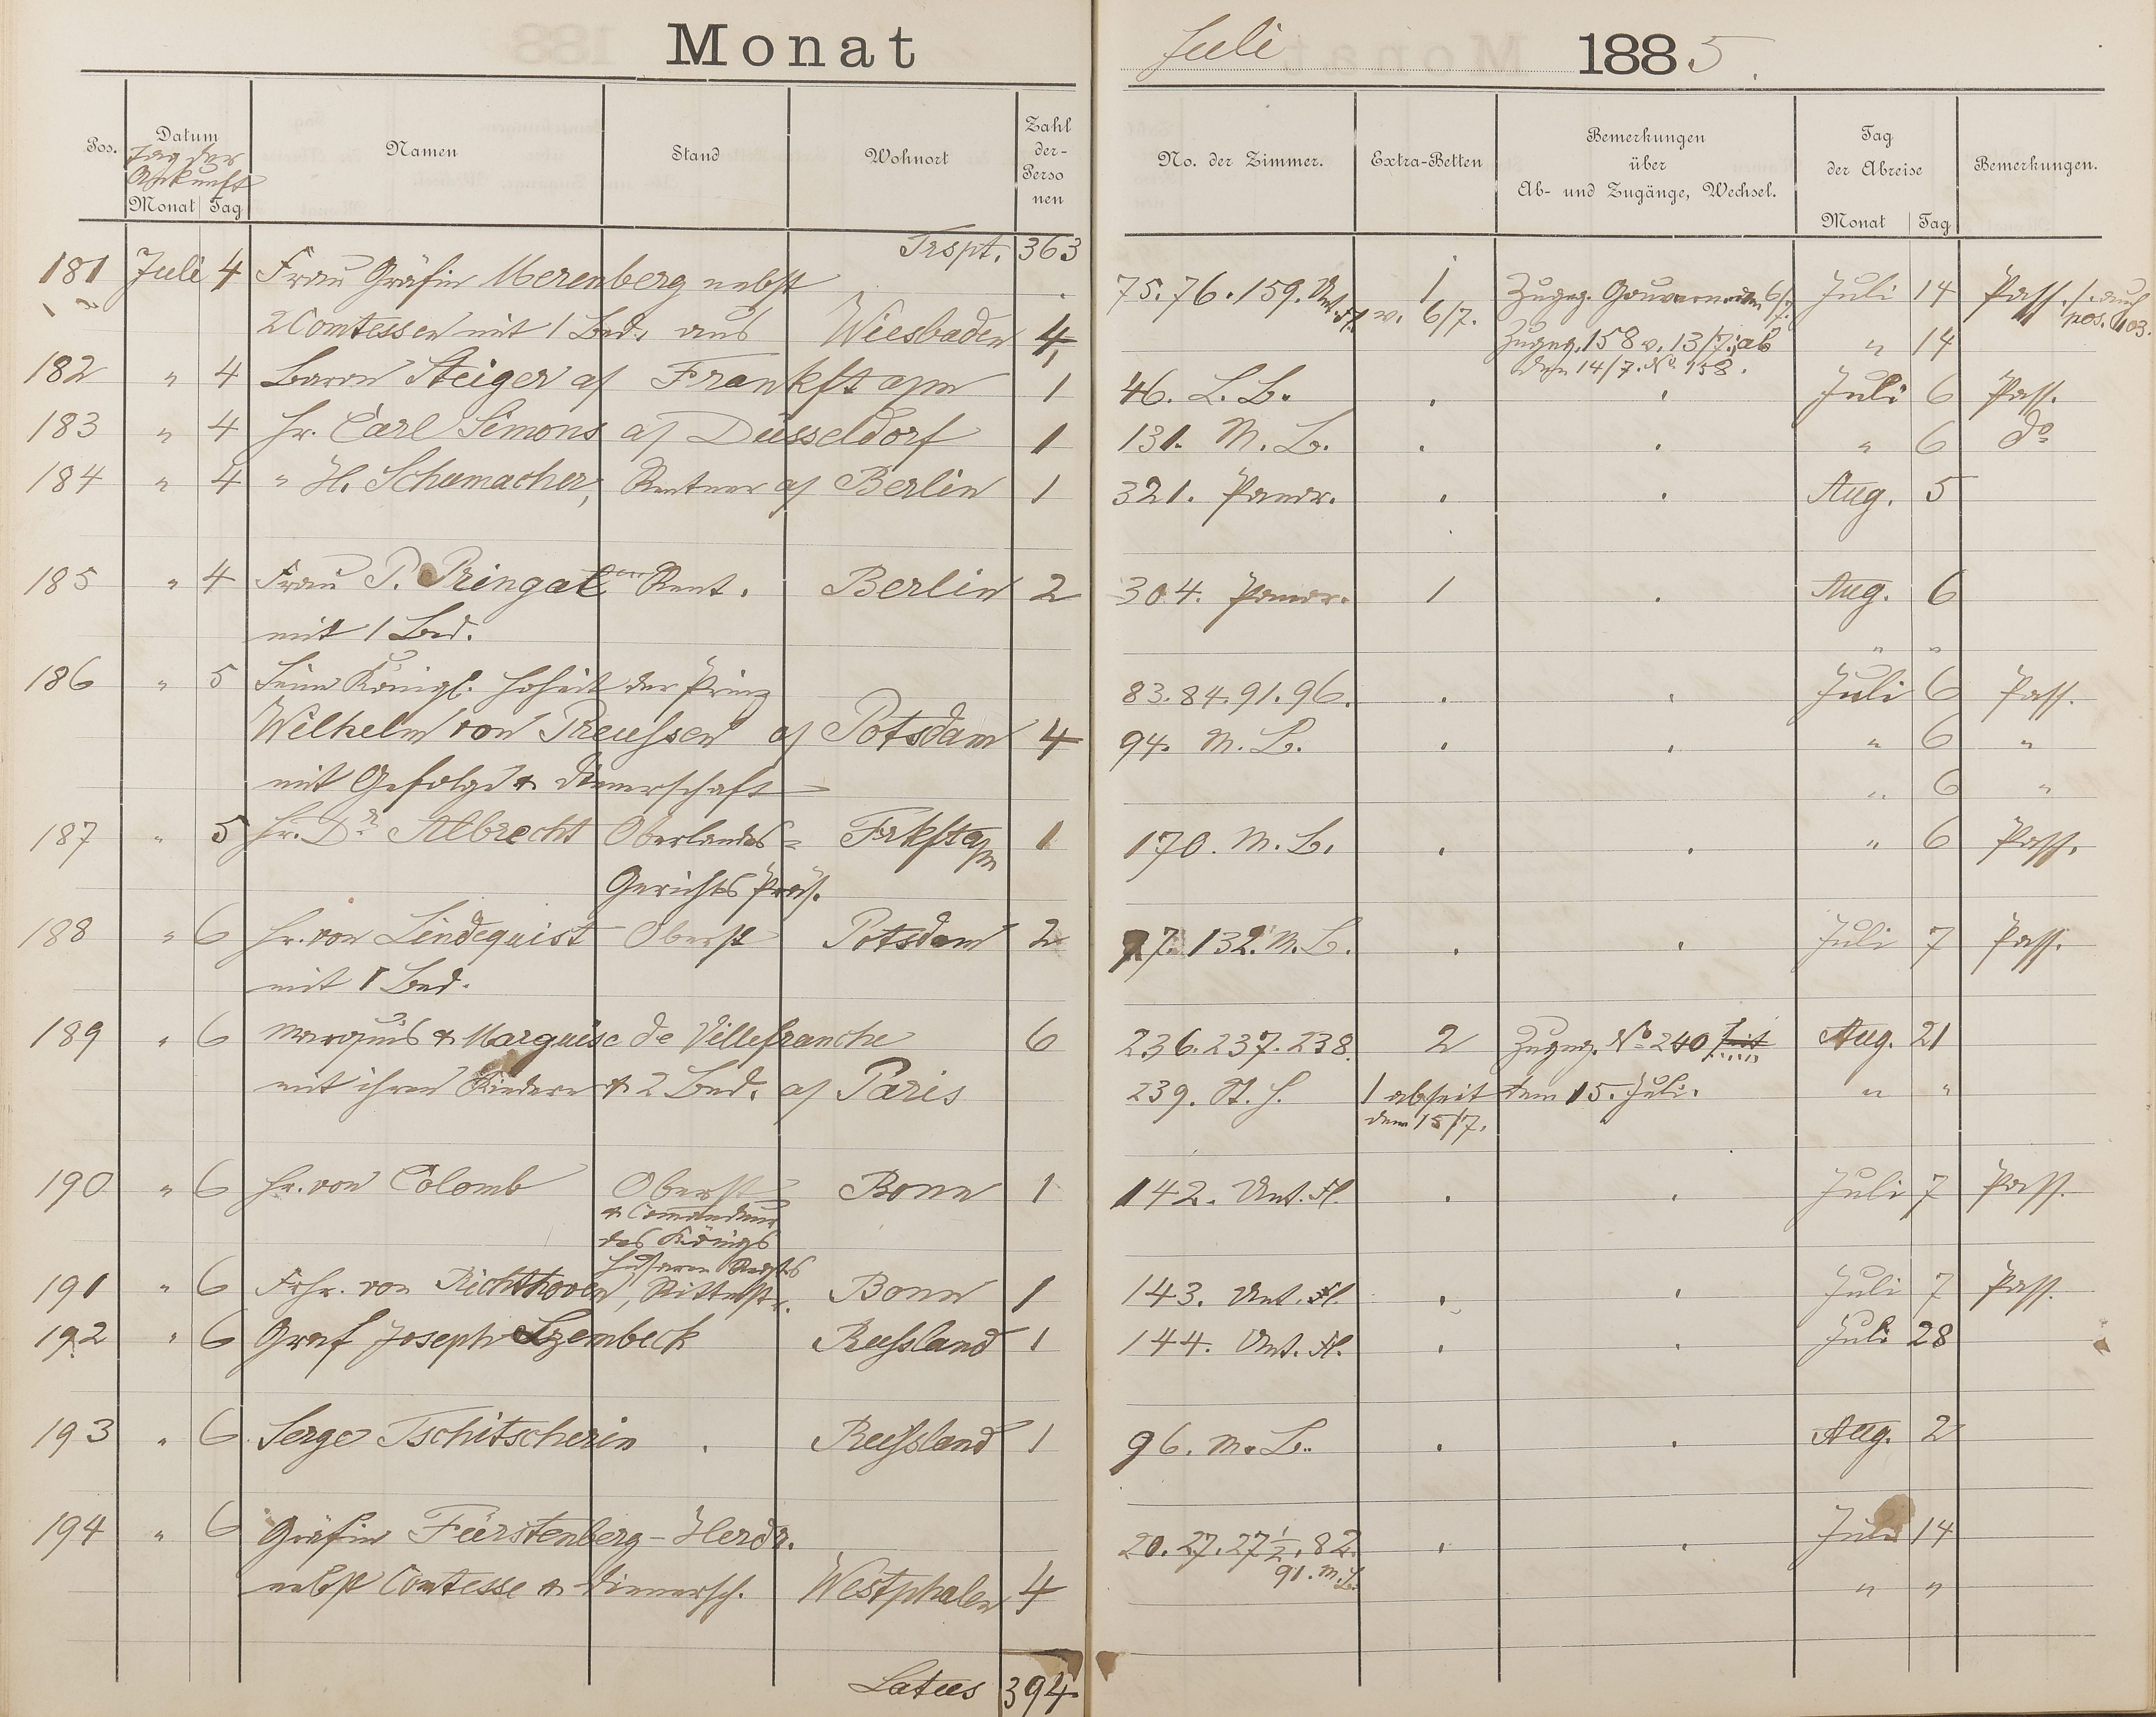 Monat Juli 1885.
Pos. Datum Namen Stand Wohnort Zahl der- Perso nen No. der Zimmer. Extra-Betten Bemerkungen über Ab- und Zugänge, Wechsel. Tag der Abreise Bemerkungen.
Tag der
Ankunft
Monat Tag Monat Tag
Trspt. 363
181 Juli 4 Frau Gräfin Merenberg nebst 75. 76. 159. Unt. H. v. 6/7. 1 Zugeg. Gouvernante 6/7. Juli 14 Pass. /. auch
pos. 103.
2 Comtessen mit 1 Bed. aus Wiesbaden 4, Zugeg. 158 v. 13/7. ab " 14
den 14/7. No. 158.
182 " 4 Baron Steiger a/ Frankft a/m 1 46. L. B. Juli 6 Pass.
183 " 4 Hr. Carl Simons a/ Düsseldorf 1 131. M. B. " 6 do
184 " 4 " H. Schumacher, Rentner a/ Berlin 1 321. Panor. Aug. 5
185 " 4 Frau P. Pringal Rent. Berlin 2 304. Panor. 1 Aug. 6
mit 1 Bed. " "
186 " 5 Seine Königl. Hoheit der Prinz 83. 84. 91. 96. Juli 6 Pass.
Wilhelm von Preußen a/ Potsdam 4 94. M. B. " 6 "
mit Gefolge & Dienerschaft " 6 "
187 " 5 Hr. Dr Albrecht Oberlandes- Frkft a/m 1 170. M. B. " 6 Pass.
Gerichts Präs.
188 " 6 Hr. von Lindequist Oberst Potsdam 2 97. 132. M. B. Juli 7 Pass.
mit 1 Bed.
189 " 6 Marquis & Marquise de Villefranche 6 236. 237. 238. 2 Zugeg. No 240 seit Aug. 21
mit ihren Kindern & 2 Bed. a/ Paris 239. St. H. 1 ab seit dem 15. Juli. " "
dem 15/7.
190 " 6 Hr. von Colomb Oberst Bonn 1 142. Unt. H. Juli 7 Pass.
& Comandeur
des Königs
Husaren Regts
191 " 6 Frhr. von Richthoven, Rittmstr. Bonn 1 143. Unt. H. Juli 7 Pass.
192 " 6 Graf Joseph Szembeck Rußland 1 144. Unt. H. Juli 28
193 " 6 Serge Tschitscherin Rußland 1 96. M. B. Aug. 2
194 " 6 Gräfin Fürstenberg-Herdr. 20. 27. 27 1/2. 82. Juli 14
91. M. B.
nebst Comtesse & Dienersch. Westphalen 4 " "
Latus 394